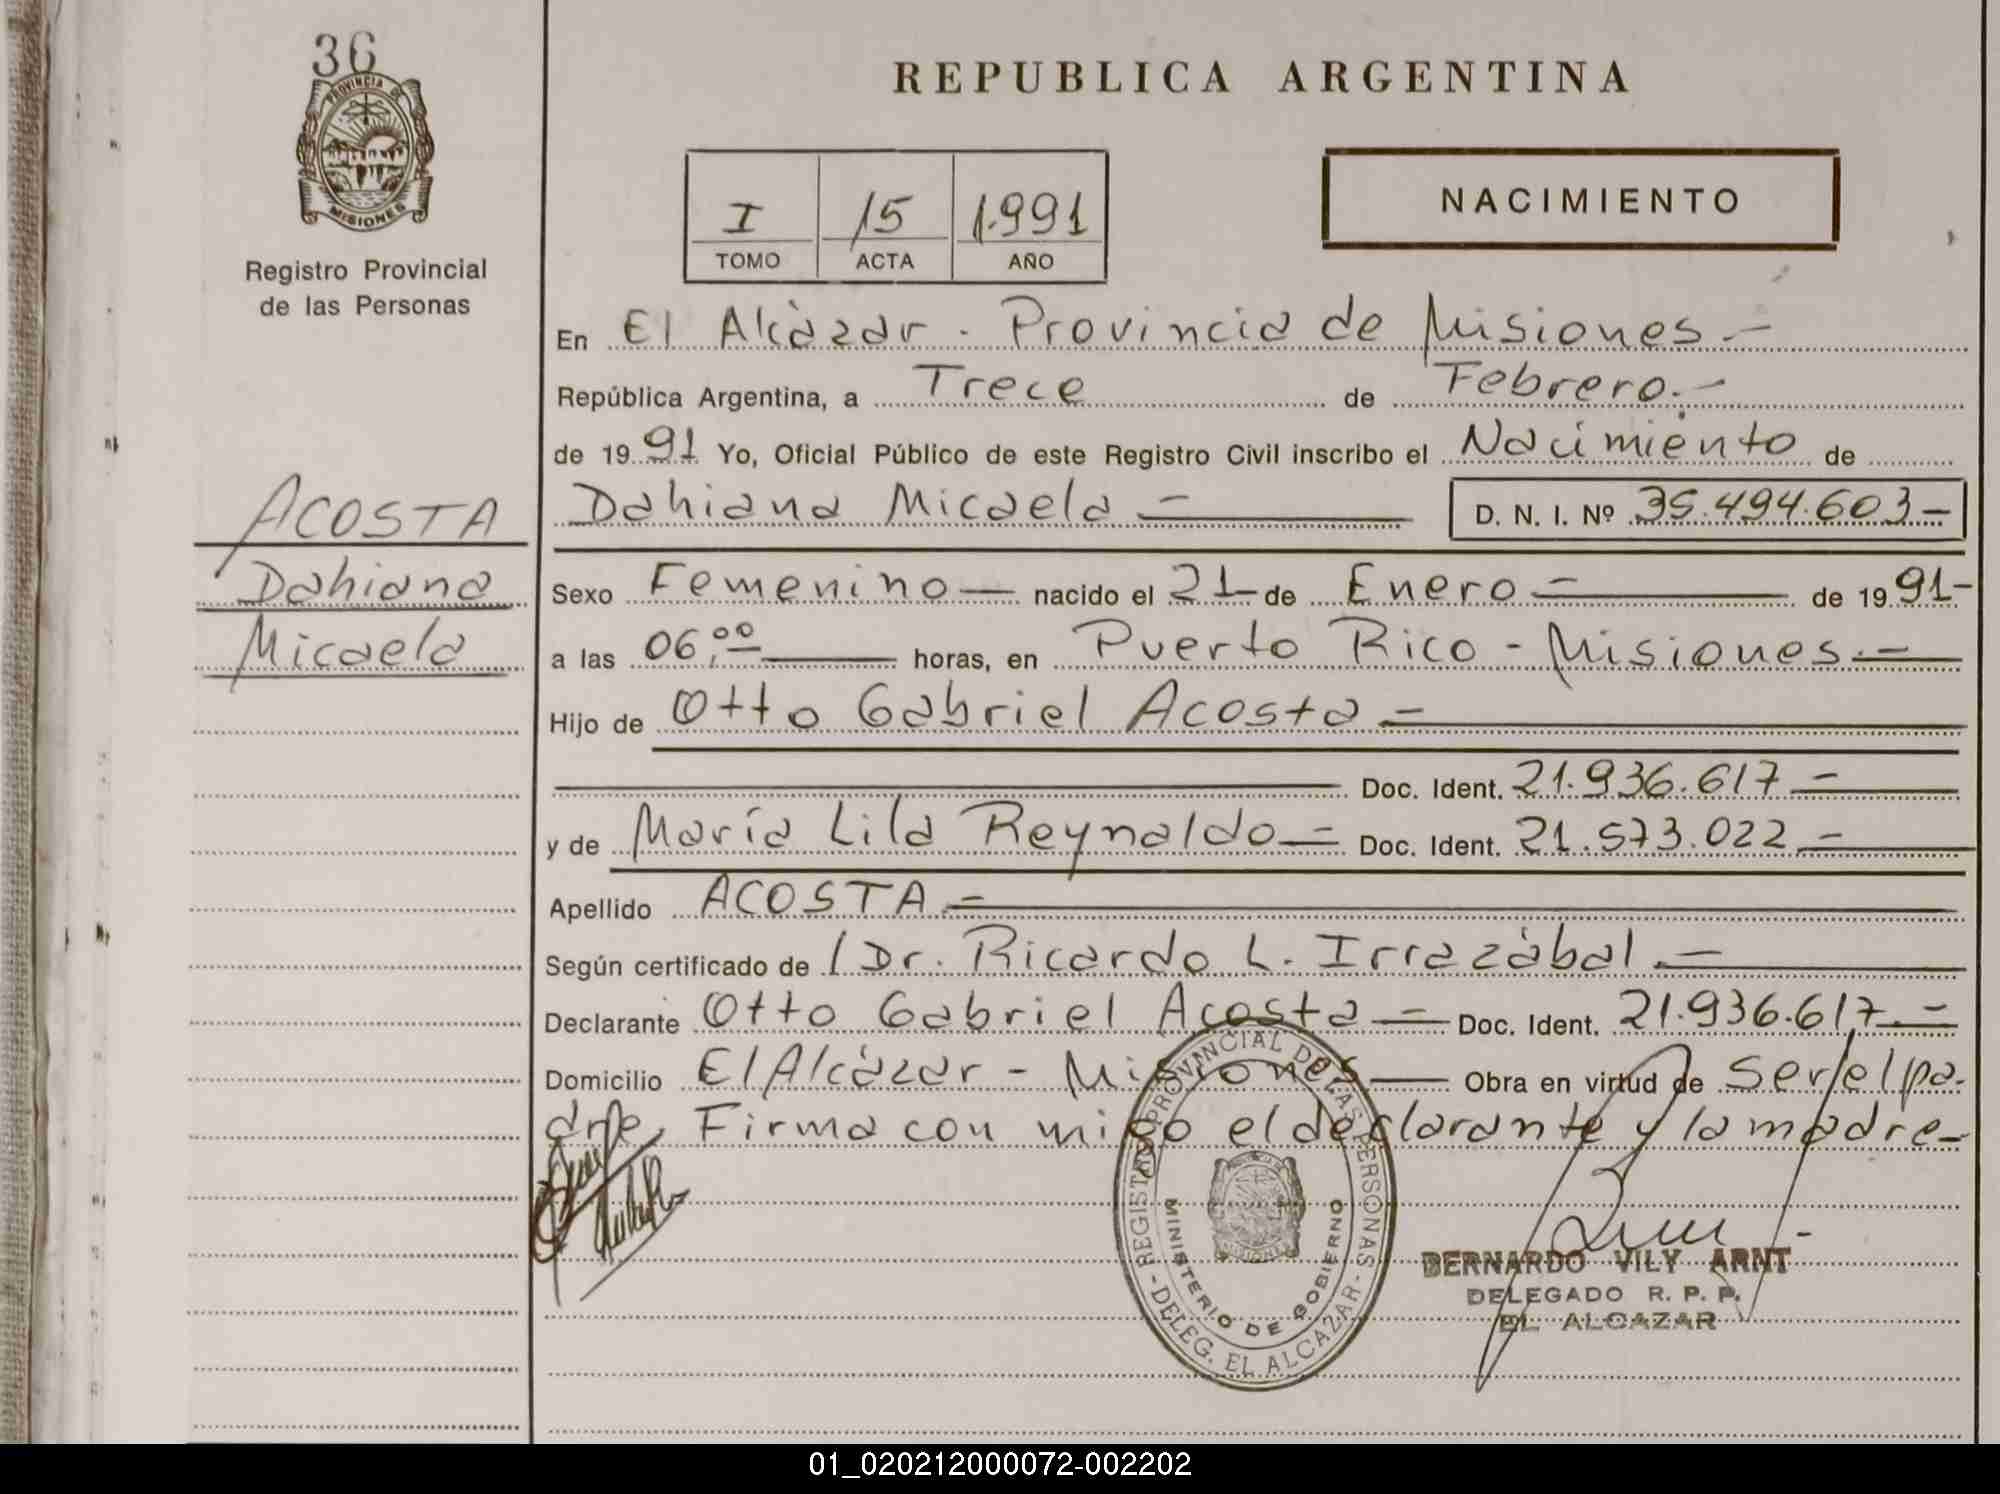 36
PROVINCIA DE
MISIONES
Registro Provincial
de las Personas
ACOSTA
Dahiana
Micaela
REPUBLICA ARGENTINA
I 15 1.991
TOMO ACTA AÑO
NACIMIENTO
En El Alcàzar - Provincia de Misiones.-
República Argentina, a Trece de Febrero.-
de 1991 Yo, Oficial Público de este Registro Civil inscribo el Nacimiento de
Dahiana Micaela — D. N. I. Nº 35.494.603-
Sexo Femenino — nacido el 21 de Enero — de 1991-
a las 06,00 horas, en Puerto Rico - Misiones.-
Hijo de Otto Gabriel Acosta -
Doc. Ident. 21.936.617 -
y de María Lila Reynaldo - Doc. Ident. 21.573.022 -
Apellido ACOSTA -
Según certificado de Dr. Ricardo L. Irrazàbal.-
Declarante Otto Gabriel Acosta - Doc. Ident. 21.936.617.-
Domicilio El Alcàzar - Misiones — Obra en virtud de ser el pa-
dre, Firma con migo el declarante y la madre-
REGISTRO PROVINCIAL DE LAS PERSONAS
MINISTERIO DE GOBIERNO
MISIONES
- DELEG. EL ALCAZAR -
BERNARDO VILY ARNT
DELEGADO R. P. P.
EL ALCAZAR
01_020212000072-002202